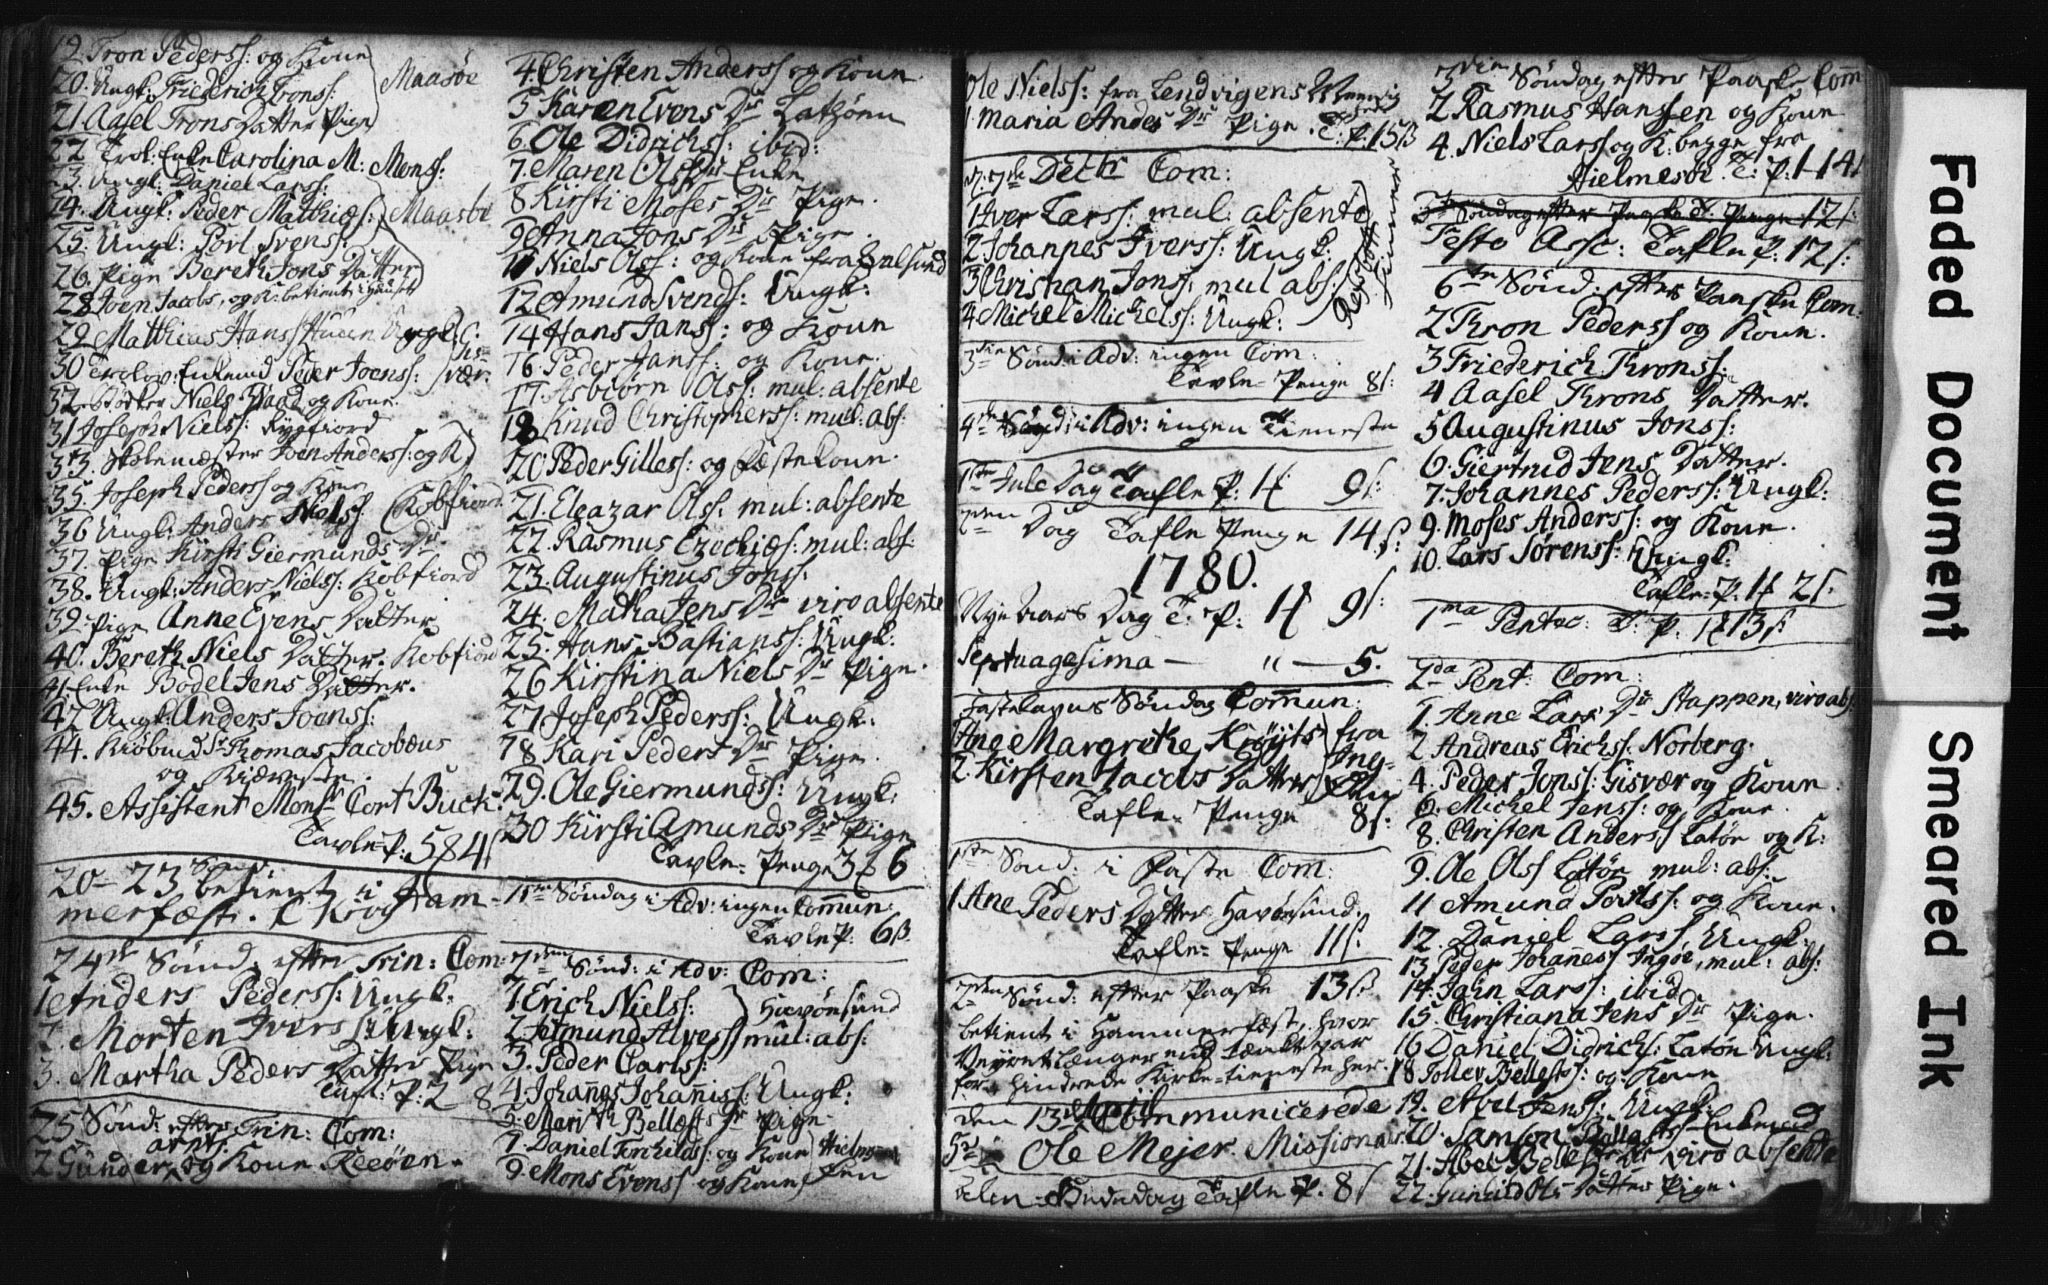 19. Tron Pederss: og Kone
20. Ungk: Friederich Trons: Maasøe
21 Aasel Trons Datter Pige
22 Trol: Enke Carolina M: Mons:
23. Ungk: Daniel Larss:
24. Ungk: Peder Mathiæs: Maasøe
25. Ungk: Povl Svens:
26. Pige Bereth Jons Datter
28 Joen Jacobs, og K: betient i Huuset
29 Matthias Hanss Ungk:
30 Trolov: Enkemd Peder Joenss: Gisvær:
32 Bødker Niels og Kone
31 Joseph Nielss: Rygfiord
33. Skolemester Joen Anderss: og K
35. Joseph Pederss og Kone
36 Ungk: Anders Nielss Kobfiord
37. Pige Kirsti Giermunds Dr
38. Ungk: Anders Nielss: Kobfiord
39. Pige Anne Evens Datter
40. Bereth Niels Datter. Kobfiord
41. Enke Bodel Jens Datter.
42 Ungk: Anders Joenss:
44. Kiøbmd Sr Thomas Jacobæus
og Kiæreste.
45. Assistent Monsr Cort Buck.
Tavle P: 5 84s
20 - 23 Sønd: betient i Ham-
merfæst. C Krog
24de Sønd: efter Trin: Com:
1 Anders Pederss: Ungk:
2. Morten Ivers: Ungk:
3. Martha Peders Datter Pige
Tavl: P: 2 8
25 Sønd: efter Trin: Com:
2 Gunder arnts: og Kone Reeøen.
4. Christen Anderss og Kone
5 Karen Evens Dr Latøen
6. Ole Didrichss: ibid:
7. Maren Ols Dr Enke
8 Kirsti Moses Dr Pige.
9 Anna Jons Dr Pige.
11 Niels Olss: og Kone fra Qvalsund
12 Amund Svends: Ungk:
14 Hans Janss: og Kone
16. Peder Hanss: og Kone.
17. Asbiørn Olss: mul: absente
18 Knud Christophers: mul: abs:
20. Peder Gilless: og Fæstekone.
21. Eleazar Olss: mul: absente
22. Rasmus Ezechiæs: mul: abs:
23. Augustinus Jonss:
24. Matha Jens Dr viro absente
25. Hans Bastianss: Ungk:
26 Kirstina Niels Dr Pige.
27 Joseph Pederss: Ungk:
28 Kari Peders Dr Pige.
29. Ole Giermunds: Ungk:
30 Kirsti Amunds Dr Pige
Tavle-Penge 3 6
1te Søndag i Adv: ingen Commun:
Tavle P: 6ß
2den Sønd: i Adv: Com:
1 Erich Nielss: Havøesund
2 Jetmund Alvess mul: abs:
3. Peder Carlss:
4. Johanes Johaniss: Ungk:
5. Merith Bellests Dr Pige
7. Daniel Torchilds: og Kone
9. Mons Evenss og Kone
Ole Nielss: fra Lendvigens
1. Maria Andes Dr Pige. T: P: 15ß
d. 7de Decbr Com:
1 Iver Larss: mul: absente
2. Johannes Iverss: Ungk:
3 Christian Jonss: mul abs:
4 Michel Michelss: Ungk:
Repsbotten
3die Sønd: i Adv: ingen Com:
Tavle-Penge 8s:
4de Sønd: i Adv: ingen Tieneste
1te Jule Dag Tafle P: 1 9s:
2den Dag Tafle Penge 14s:
1780.
Nye Aars Dag T: P: 1 9s:
Septuagesima — " — 5.
Fastelavns Søndag Commun:
Ane Margrethe Krøyts fra
2. Kirsten Jacobs Datter Ing-
øen
Tafle-Penge 8s:
1ste Sønd: i Faste Com:
1 Ane Peders Datter Havøesund.
Tafle-Penge 11s:
2den Sønd: efter Paaske 13s
betient i Hammerfæst, hvor
Veyret længer end tænkt var
for hindrede Kirke-tieneste her.
den 13de April Communicerede
Sr Ole Mejer Missionair
Bededag Tafle P. 8s
3die Søndag efter Paaske Com
2 Rasmus Hanssen og Kone
4. Niels Larss og K: begge fra
Hielmesøe T: P: 1 14s
3de Søndag efter Paaske T: Penge 12s:
Festo Asc: Tafle P: 12s:
6te Sønd: efter Paaske Com:
2 Thron Pederss og Kone.
3 Friederich Thronss:
4 Aasel Throns Datter.
5 Augustinus Jonss:
6. Giertrud Jens Datter.
7. Johannes Pederss: Ungk:
9. Moses Anderss: og Kone.
10. Lars Sørenss: Ungk:
Tafle P: 1 2s.
1ma Pentec: T: P: 1 13s:
2da Pent: Com:
1. Anne Lars Dr Stappen, viro abs:
2 Andreas Erichss: Norberg.
4. Peder Jonss: Gisvær og Kone
6. Michel Jenss: og Kone.
8. Christen Anderss Latøe og K:
9. Ole Olss Latøe mul: abs:
11 Amund Povlss: og Kone.
12. Daniel Larss, Ungk:
13 Peder Johaness Ingøe, mul: abs:
14. John Larss: ibid
15. Christiana Jens Dr Pige.
16 Daniel Didrichs: Latøe Ungk:
18 Tollev Bellests: og Kone
19. Abel Jenss: Ungk:
20. Samson Bellests Enkemd
21. Abel Bellests Dr viro absente
22. Gunild Ols Datter Pige.
Faded Document
Smeared Ink